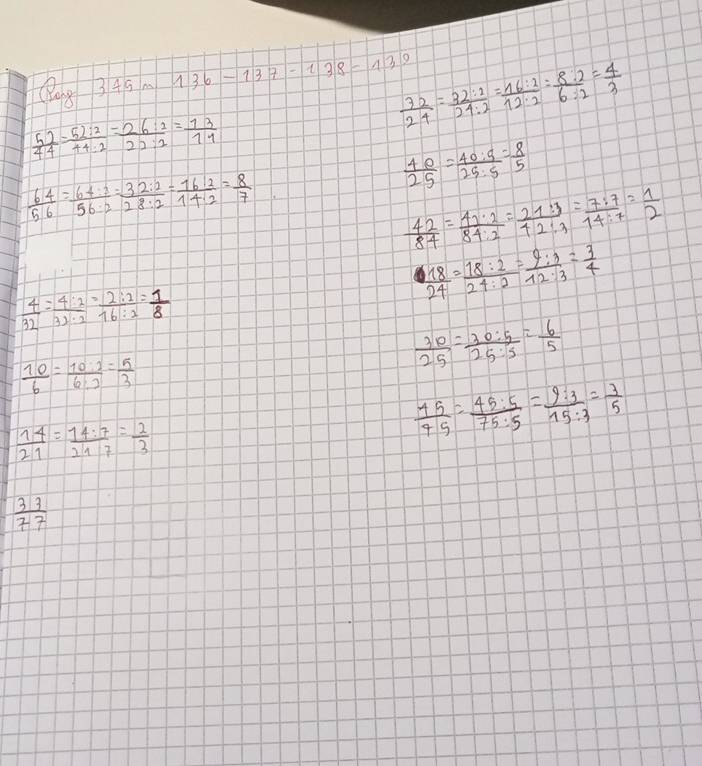 345 n 136 - 137 - 138 - 139
52/44 = 52:2/44:2 = 26:2/22:2 = 13/11
64/56 = 64:2/56:2 = 32:2/28:2 = 16:2/14:2 = 8/7
4/32 = 4:2/32:2 = 2:2/16:2 = 1/8
10/6 = 10:2/6:2 = 5/3
14/21 = 14:7/21 7 = 2/3
33/77
32/24 = 32:2/24:2 = 16:2/12:2 = 8:2/6:2 = 4/3
40/25 = 40:5/25:5 = 8/5
42/84 = 42:2/84:2 = 21:3/42:3 = 7:7/14:7 = 1/2
18/24 = 18:2/24:2 = 9:3/12:3 = 3/4
30/25 = 30:5/25:5 = 6/5
45/75 = 45:5/75:5 = 9:3/15:3 = 3/5